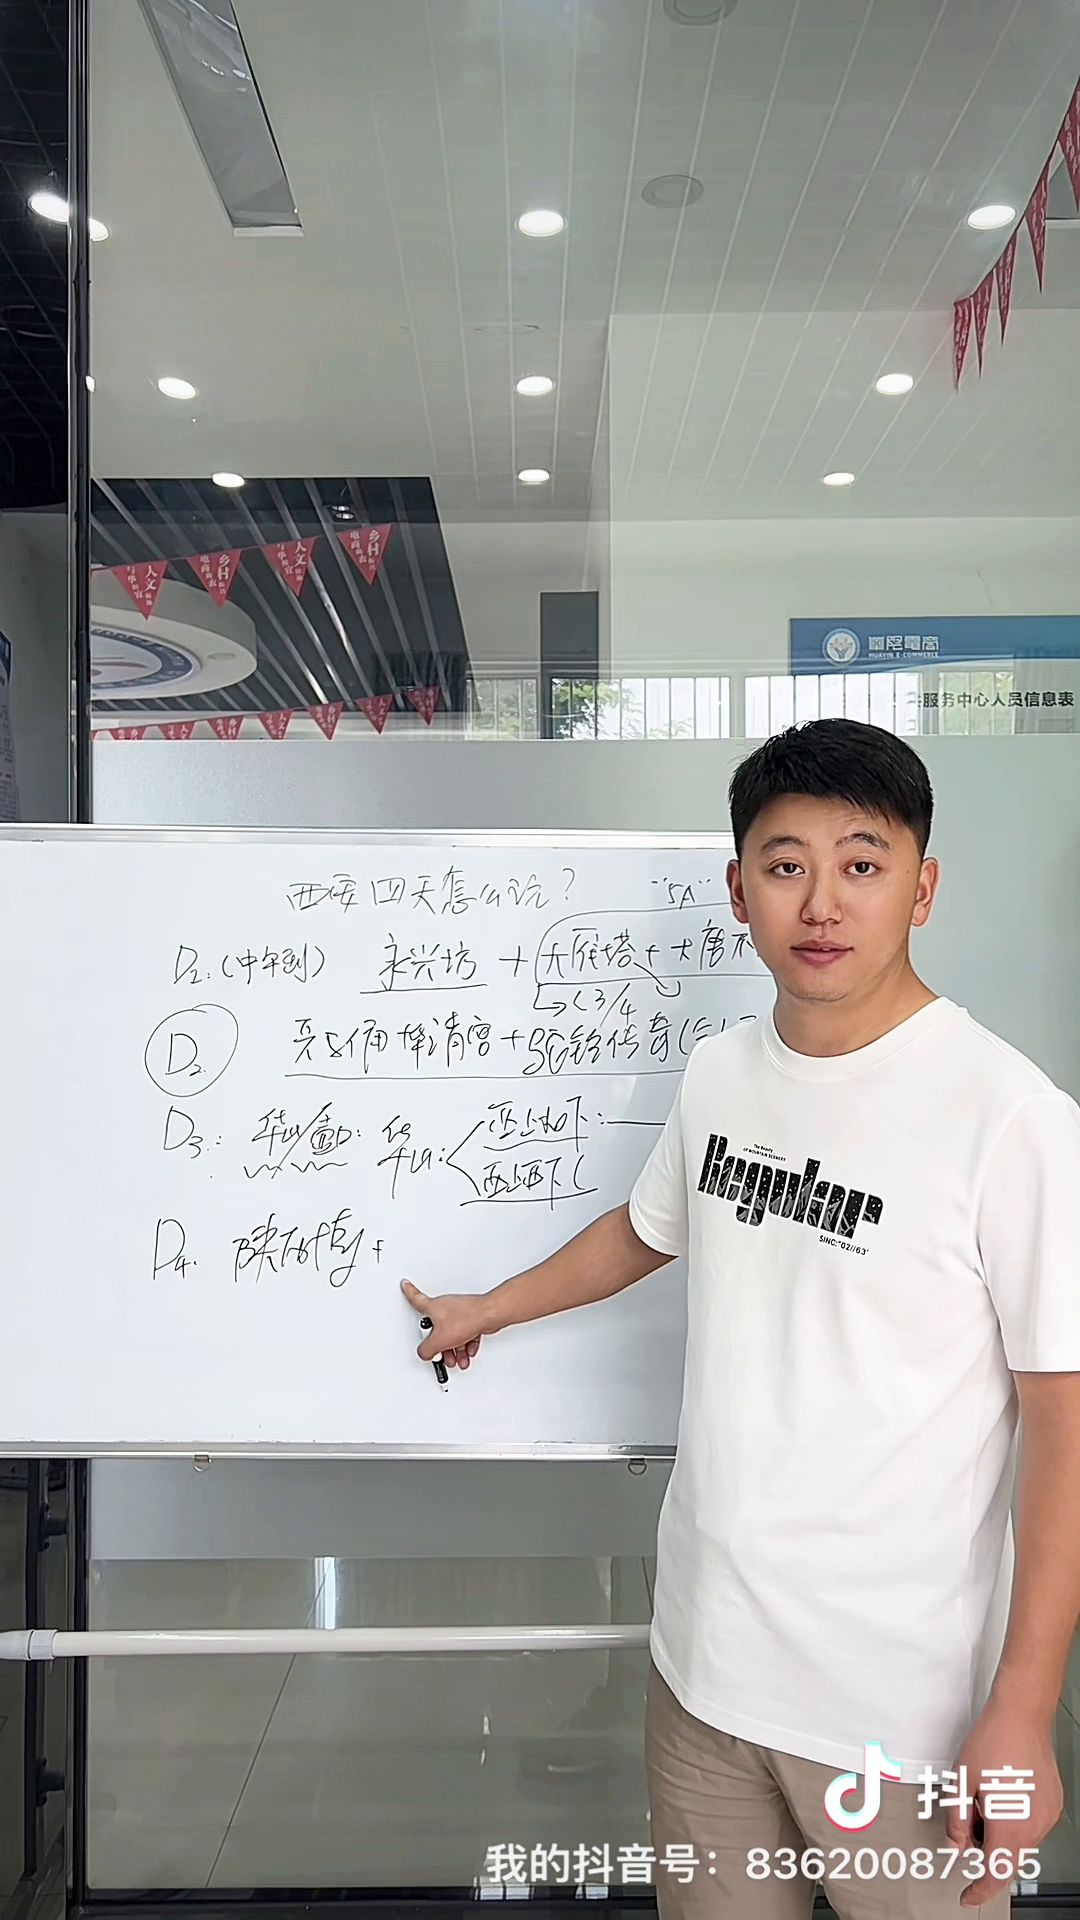 人文
乡村
乡村
華陰電商
HUAYIN E-COMMERCE
服务中心人员信息表
西安四天怎么玩？
"5A"
D1.(中午到) 永兴坊 + 大雁塔 + 大唐不
<3/4
D2. 兵马俑 华清宫 + 驼铃传奇(
D3.: 华山/ 华山: 西上北下:
西上西下(
D4. 陕历博 +
The Beauty
OF MOUNTAIN SCENERY
Regular
SINC:"02//63'
抖音
我的抖音号：83620087365